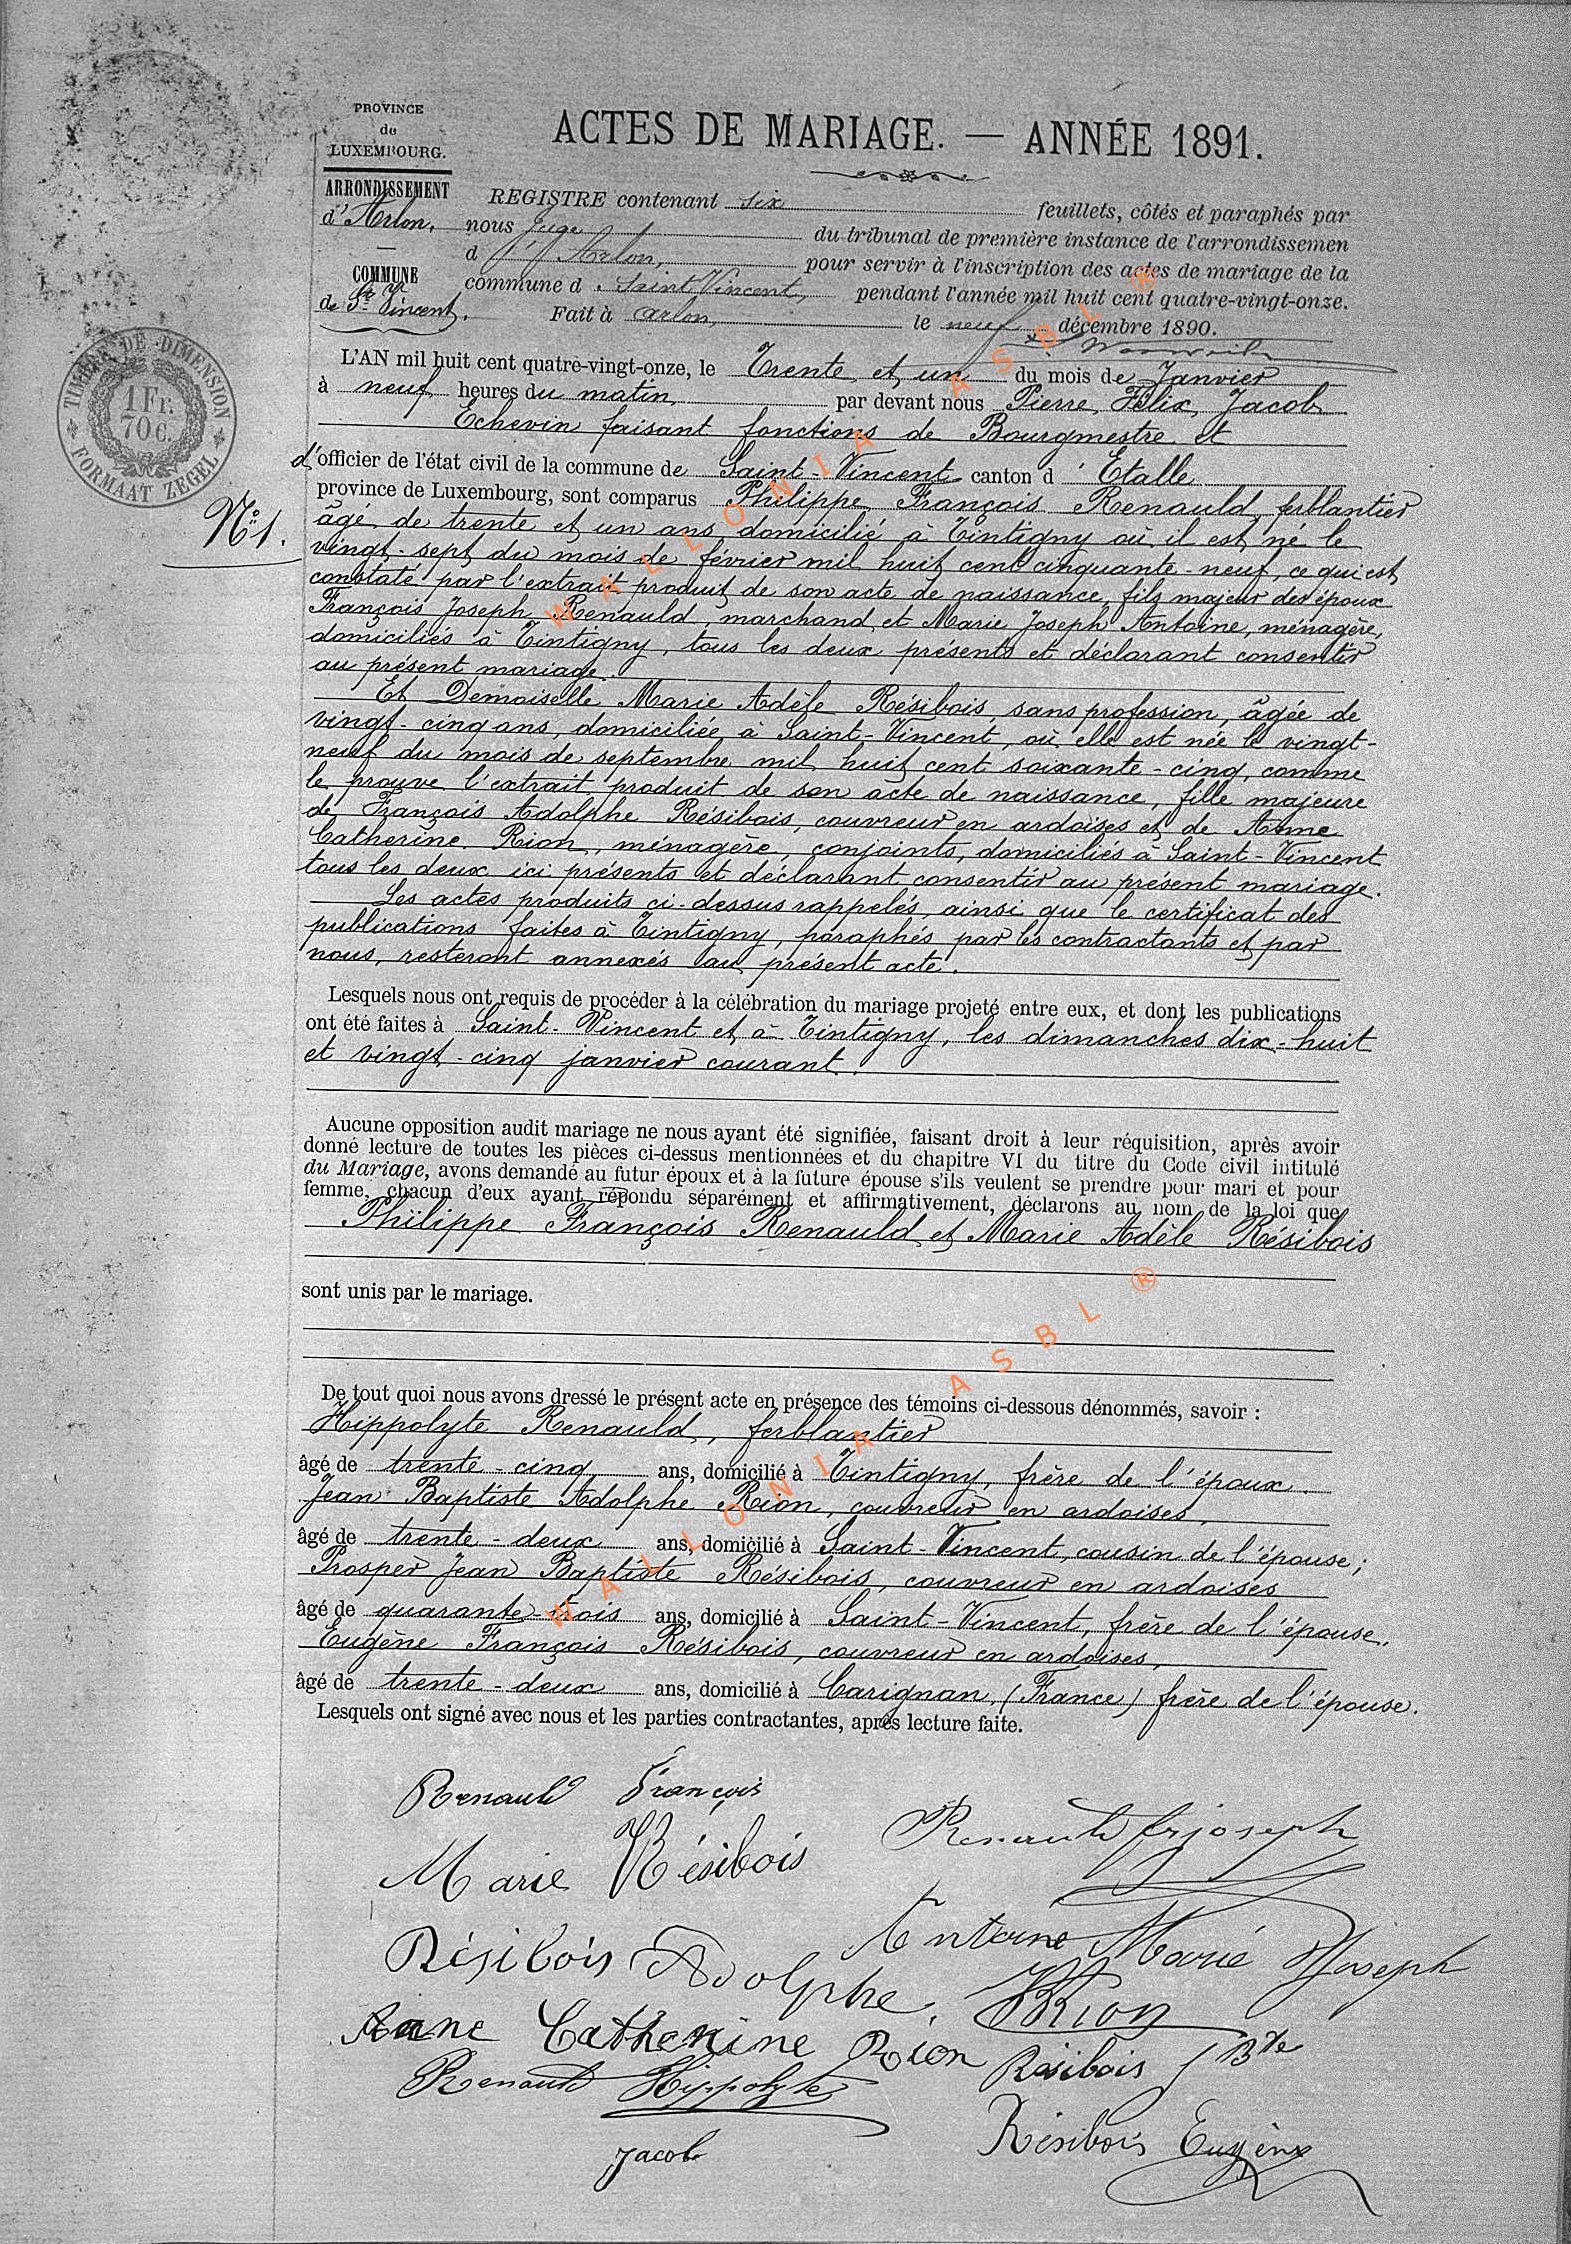 PROVINCE
de
LUXEMBOURG.
ARRONDISSEMENT
d'Arlon.
COMMUNE
de St Vincent.
ACTES DE MARIAGE. — ANNÉE 1891.
REGISTRE contenant six feuillets, côtés et paraphés par
nous Juge du tribunal de première instance de l'arrondissemen
d'Arlon, pour servir à l'inscription des actes de mariage de la
commune d Saint Vincent, pendant l'année mil huit cent quatre-vingt-onze.
Fait à Arlon, le neuf décembre 1890.
TIMBRE DE DIMENSION
1 FR.
70 C.
FORMAAT ZEGEL
L'AN mil huit cent quatre-vingt-onze, le Trente et un du mois de Janvier
à neuf heures du matin, par devant nous Pierre Félix Jacob
Echevin faisant fonctions de Bourgmestre et
d'officier de l'état civil de la commune de Saint-Vincent canton d'Etalle
N° 1.
province de Luxembourg, sont comparus Philippe François Renauld, ferblantier
âgé de trente et un ans, domicilié à Tintigny où il est né le
vingt-sept du mois de février mil huit cent cinquante-neuf, ce qui est
constaté par l'extrait produit de son acte de naissance, fils majeur des époux
François Joseph Renauld, marchand, et Marie Joseph Antoine, ménagère,
domiciliés à Tintigny, tous les deux présents et déclarant consentir
au présent mariage.
Et Demoiselle Marie Adèle Résibois, sans profession, âgée de
vingt-cinq ans, domiciliée à Saint-Vincent, où elle est née le vingt-
neuf du mois de septembre mil huit cent soixante-cinq, comme
le prouve l'extrait produit de son acte de naissance, fille majeure
de François Adolphe Résibois, couvreur en ardoises et de Anne
Catherine Rion, ménagère, conjoints, domiciliés à Saint-Vincent
tous les deux ici présents et déclarant consentir au présent mariage.
Les actes produits ci-dessus rappelés, ainsi que le certificat des
publications faites à Tintigny, paraphés par les contractants et par
nous, resteront annexés au présent acte.
Lesquels nous ont requis de procéder à la célébration du mariage projeté entre eux, et dont les publications
ont été faites à Saint-Vincent et à Tintigny, les dimanches dix-huit
et vingt-cinq janvier courant.
Aucune opposition audit mariage ne nous ayant été signifiée, faisant droit à leur réquisition, après avoir
donné lecture de toutes les pièces ci-dessus mentionnées et du chapitre VI du titre du Code civil intitulé
du Mariage, avons demandé au futur époux et à la future épouse s'ils veulent se prendre pour mari et pour
femme, chacun d'eux ayant répondu séparément et affirmativement, déclarons au nom de la loi que
Philippe François Renauld et Marie Adèle Résibois
sont unis par le mariage.
De tout quoi nous avons dressé le présent acte en présence des témoins ci-dessous dénommés, savoir :
Hippolyte Renauld, ferblantier
âgé de trente-cinq ans, domicilié à Tintigny, frère de l'époux.
Jean Baptiste Adolphe Rion, couvreur en ardoises,
âgé de trente-deux ans, domicilié à Saint-Vincent, cousin de l'épouse;
Prosper Jean Baptiste Résibois, couvreur en ardoises
âgé de quarante-trois ans, domicilié à Saint-Vincent, frère de l'épouse.
Eugène François Résibois, couvreur en ardoises,
âgé de trente-deux ans, domicilié à Carignan, (France) frère de l'épouse.
Lesquels ont signé avec nous et les parties contractantes, après lecture faite.
Renauld François
Renauld frjoseph
Marie Résibois
Antoine Marie Joseph
Résibois Adolphe
Rion
Anne Catherine Rion
Résibois J Bte
Renauld Hippolyte
Résibois Eugène
Jacob
WALLONIA ASBL ®
WALLONIA ASBL ®